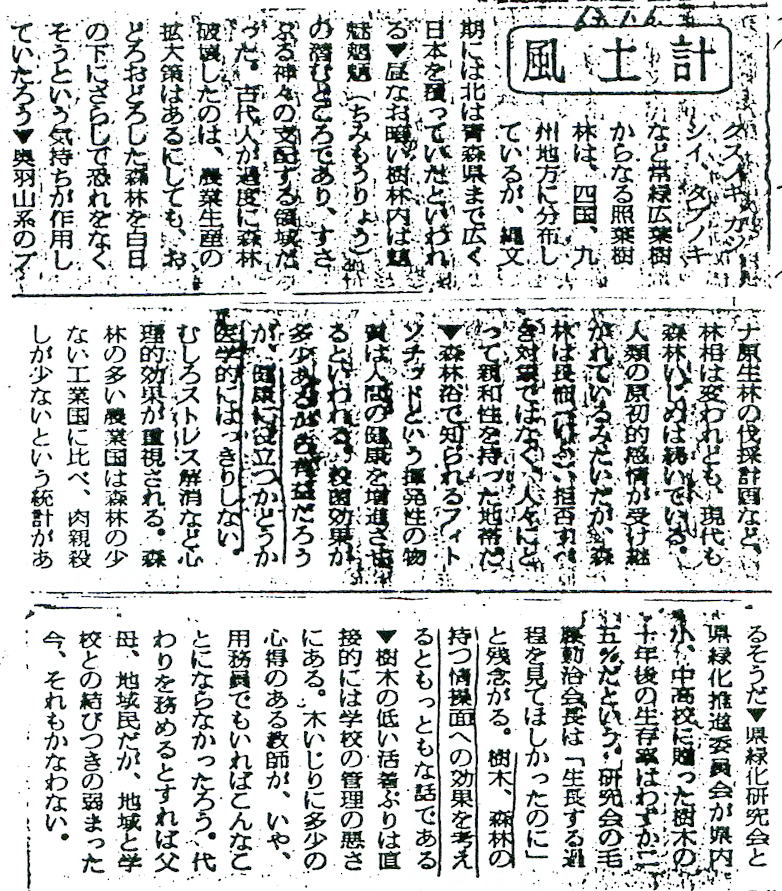 63.1.6
風土計
クスノキ、カシ、
シイ、タブノキ
など常緑広葉樹
からなる照葉樹
林は、四国、九
州地方に分布し
ているが、縄文
期には北は青森県まで広く
日本を覆っていたといわれ
る▼昼なお暗い樹林内は魑
魅魍魎（ちみもうりょう）
の潜むところであり、すさ
ぶる神々の支配する領域だ
った。古代人が過度に森林
破壊したのは、農業生産の
拡大策はあるにしても、お
どろおどろした森林を白日
の下にさらして恐れをなく
そうという気持ちが作用し
ていたろう▼奥羽山系のブ
ナ原生林の伐採計画など、
林相は変われども、現代も
森林いじめは続いている。
人類の原初的感情が受け継
がれているみたいだが、森
林は畏怖
き対象ではなく、人々にと
って親和性を持った地帯だ
▼森林浴で知られるフィト
ンチッドという揮発性の物
質は人間の健康を増進させ
るといわれる。殺菌効果が
多少あるから有益だろう
が、健康に役立つかどうか
医学的にはっきりしない。
むしろストレス解消など心
理的効果が重視される。森
林の多い農業国は森林の少
ない工業国に比べ、肉親殺
しが少ないという統計があ
るそうだ▼県緑化研究会と
県緑化推進委員会が県内
小、中高校に贈った樹木の
十年後の生存率はわずか二
五％だという。研究会の毛
藤勤治会長は「生長する過
程を見てほしかったのに」
と残念がる。樹木、森林の
持つ情操面への効果を考え
るともっともな話である
▼樹木の低い活着ぶりは直
接的には学校の管理の悪さ
にある。木いじりに多少の
心得のある教師が、いや、
用務員でもいればこんなこ
とにならなかったろう。代
わりを務めるとすれば父
母、地域民だが、地域と学
校との結びつきの弱まった
今、それもかなわない。